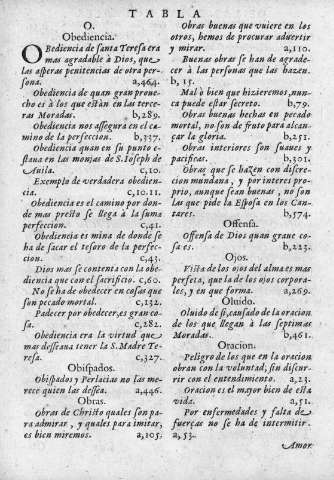 TABLA
O.
Obediencia.
OBediencia de santa Teresa era
mas agradable à Dios, que
las asperas penitencias de otra per-
sona. a,464.
Obediencia de quan gran proue-
cho es à los que estàn en las terce-
ras Moradas. b,289.
Obediencia nos assegura en el ca-
mino de la perfeccion. b,337.
Obediencia quan en su punto e-
staua en las monjas de S. Ioseph de
Auila. c,10.
Exemplo de verdadera obedien-
cia. c,10.11.
Obediencia es el camino por don-
de mas presto se llega à la suma
perfeccion. c,41.
Obediencia es mina de donde se
ha de sacar el tesoro de la perfec-
cion. c,43.
Dios mas se contenta con la obe-
diencia que con el sacrificio. c,60.
No se ha de obedecer en cosas que
sun pecado mortal. c,132.
Padecer por obedecer, es gran co-
sa. c,282.
Obediencia era la virtud que
mas desseaua tener la S. Madre Te-
resa. c,327.
Obispados.
Obispados y Perlacias no las me-
rece quien las dessea. a,446.
Obras.
Obras de Christo quales son pa-
ra admirar, y quales para imitar,
es bien miremos. a,305.
Obras buenas que vuiere en los
otros, hemos de procurar aduertir
y mirar. a,110.
Buenas obras se han de agrade-
cer à las personas que las hazen.
b, 15.
Mal ò bien que hizieremos, nun-
ca puede estar secreto. b,79.
Obras buenas hechas en pecado
mortal, no son de fruto para alcan-
çar la gloria. b,251.
Obras interiores son suaues y
pacificas. b,301.
Obras que se hazen con discre-
cion mundana, y por interes pro-
prio, aunque sean buenas, no son
las que pide la Esposa en los Can-
tares. b,574.
Offensa.
Offensa de Dios quan graue co-
sa es. b,223.
Ojos.
Vista de los ojos del alma es mas
perfeta, que la de los ojos corpora-
les, y en que forma. a,269.
Oluido.
Oluido de si, causado de la oracion
de los que llegan à las septimas
Moradas. b,461.
Oracion.
Peligro de los que en la oracion
obran con la voluntad, sin discur-
rir con el entendimiento. a,23.
Oracion es el mayor bien de esta
vida. a,51.
Por enfermedades y falta de
fuerças no se ha de intermitir.
a,53.
Amor.